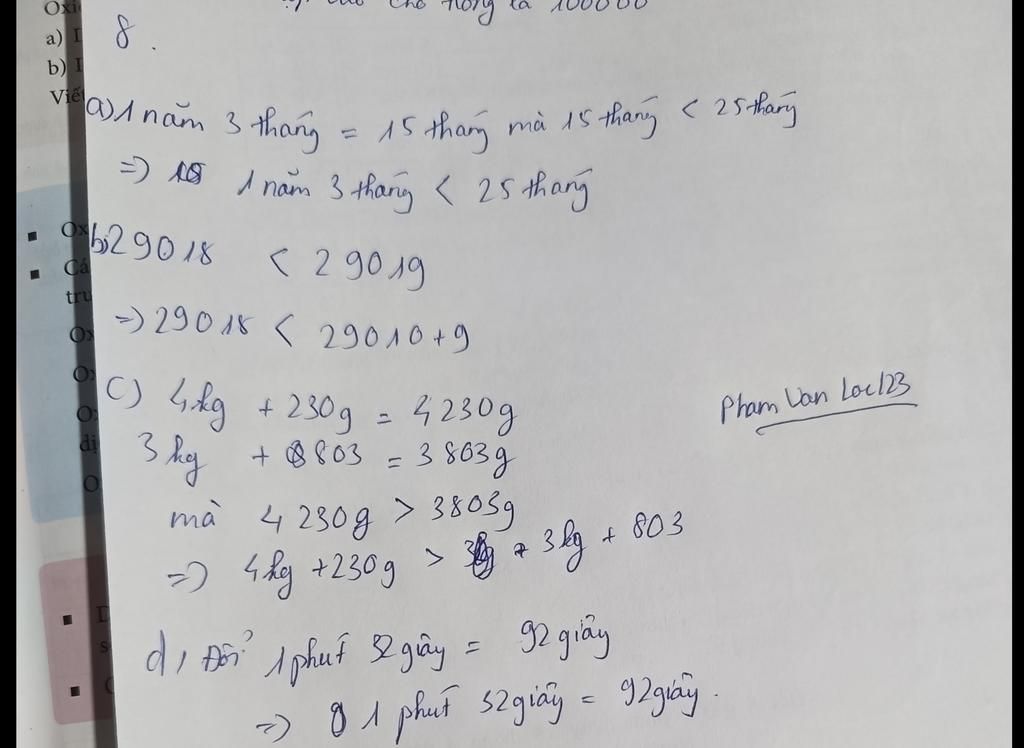 Oxi
a)
b)
Viết
là 100000
8.
a) 1 năm 3 tháng = 15 tháng mà 15 tháng < 25 tháng
=> 1 năm 3 tháng < 25 tháng
b) 29018 < 29019
=> 29018 < 29010 + 9
c) 4kg + 230g = 4230g
3kg + 803 = 3803g
mà 4230g > 3803g
=> 4kg + 230g > 3kg + 803
Pham Van Loc123
d, Đổi 1 phút 32 giây = 92 giây
=> 1 phút 32 giây = 92 giây.